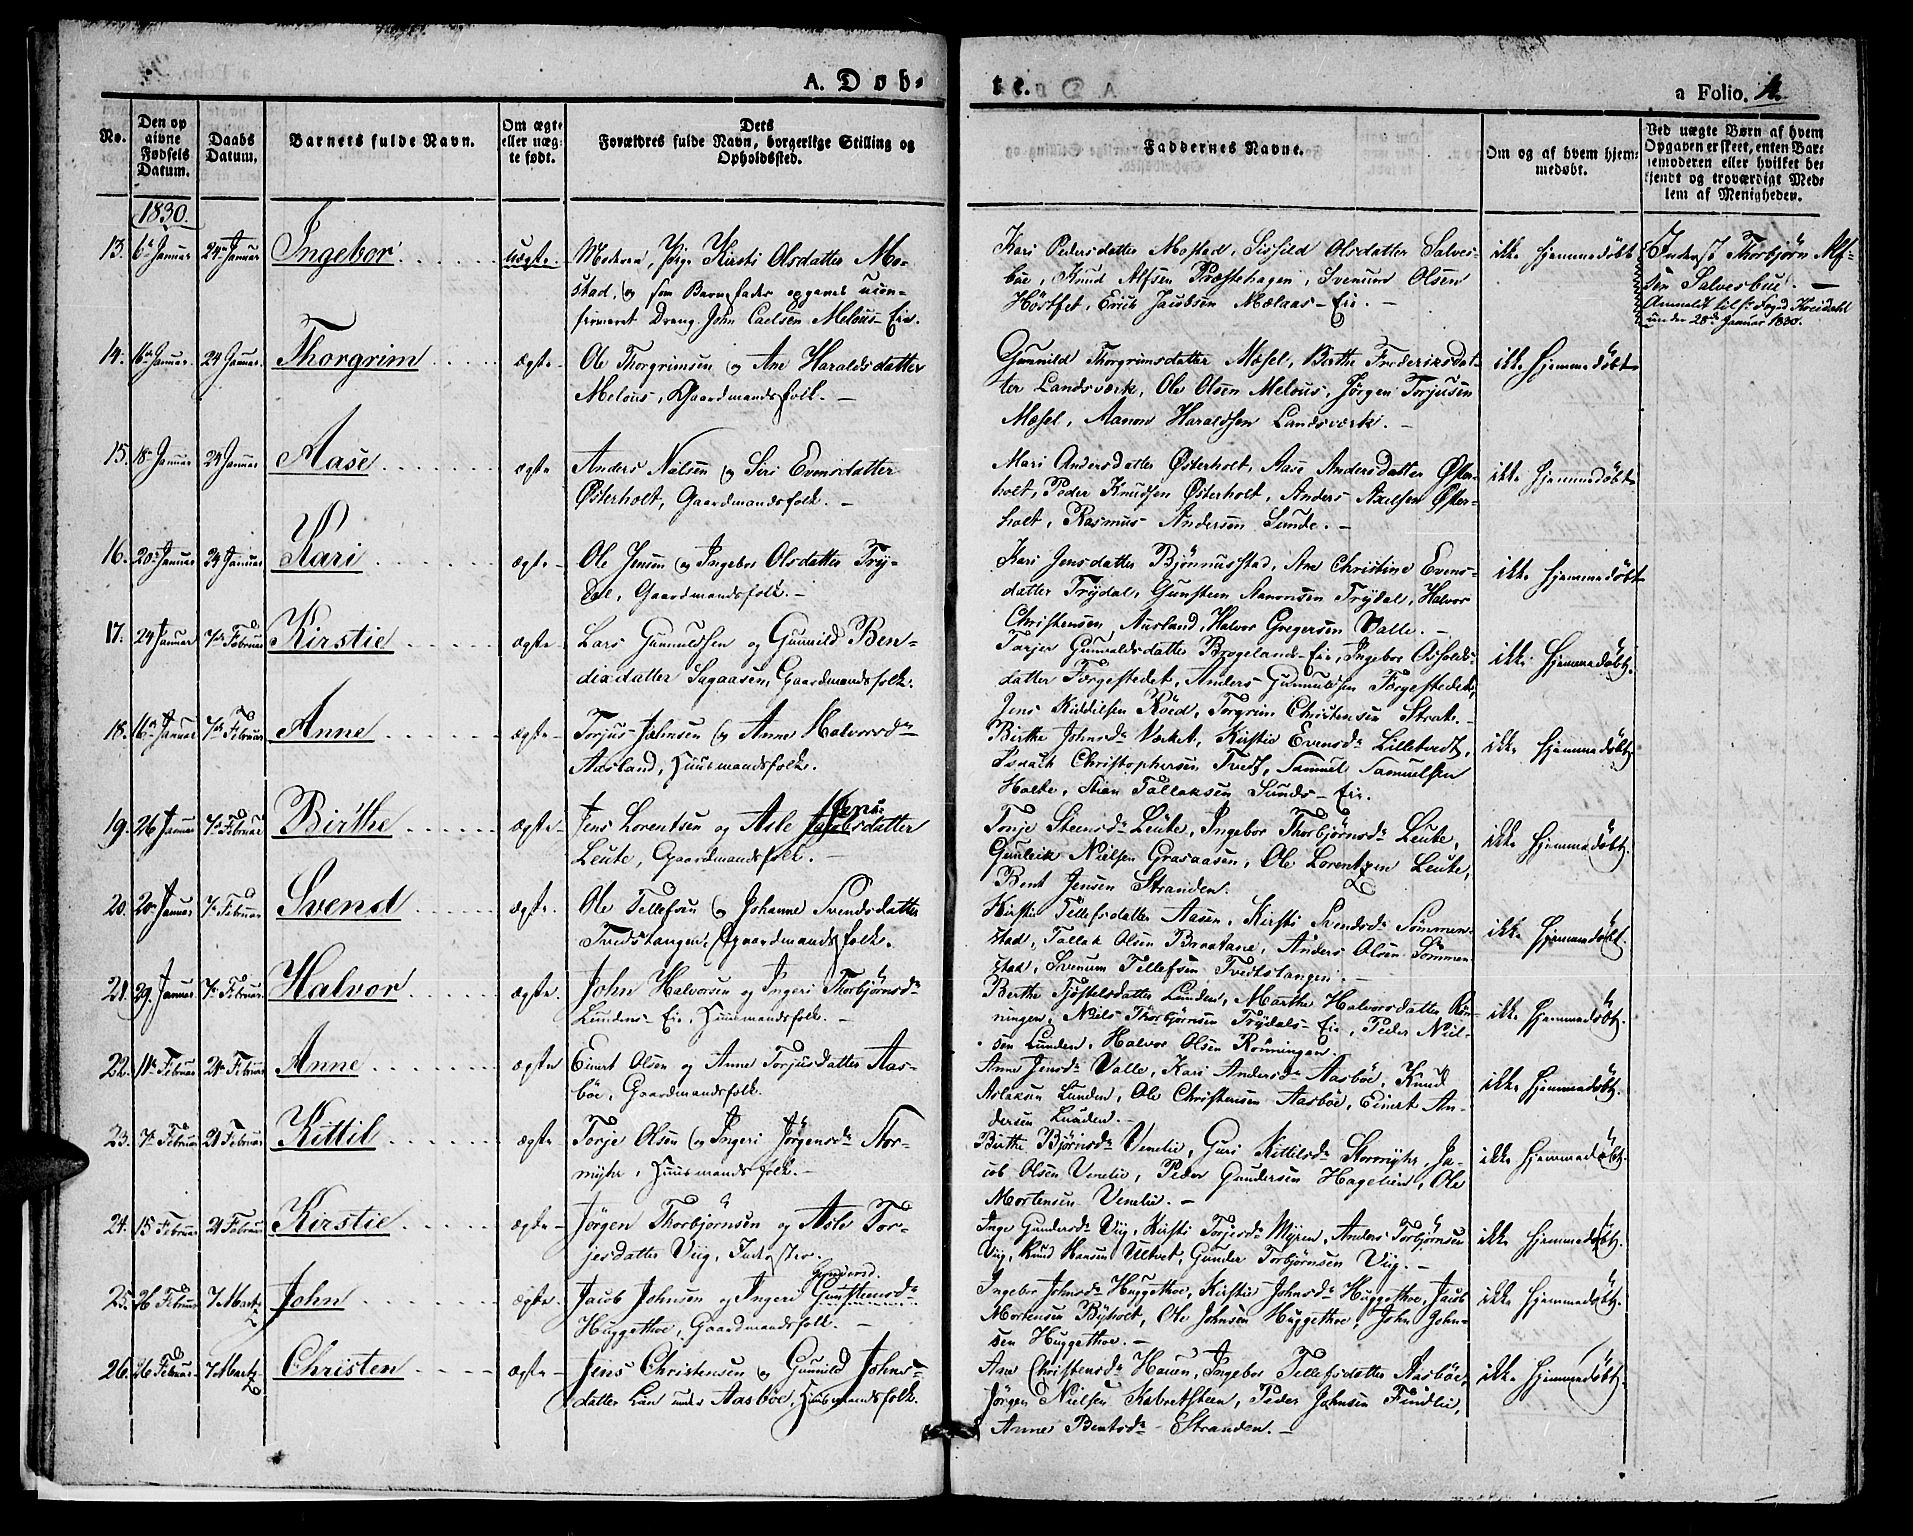 A. Døb-
te.
a Folio. 4.
No.
Den op
givne
Fødsels
Datum.
Daabs
Datum.
Barnets fulde Navn.
Om ægte
eller uæg-
te født.
Dets
Forældres fulde Navn, borgerlige Stilling og
Opholdssted.
Faddernes Navne.
Om og af hvem hjem-
medøbt.
Ved uægte Børn af hvem
Opgaven er skeet, enten Bar-
nemoderen eller hvilket be-
kjendt og troværdigt Med-
lem af Menigheden.
1830.
13. 6te Januar 24de Januar Ingebor uægte.
Moderen, Pige Kirsti Olsdatter Mo-
stad, og som Barnefader opgaves ucon-
firmeret Dreng John Caelsen Melaus-Eie.
Kari Pedersdatter Mostad, Sissild Olsdatter Salves-
bøe, Knud Alfsen Præstehagen, Svenum Olsen
Høstfet, Erick Jacobsen Mælaas-Eie. -
ikke hjemmedøbt
Inderst Thorbjörn Alf-
sen Salvesbue. -
Anmeldt til Foged Heidahl
under 28de Januar 1830.
14. 16de Januar. 24 Januar. Thorgrim ægte
Ole Thorgrimsen og Ane Haraldsdatter
Melous, Gaardmandsfolk. -
Gunnild Thorgrimsdatter Mæsel, Berthe Frederiksdat-
ter Landsværk, Ole Olsen Melous, Jørgen Torjusen
Mæsel, Aanon Haraldsen Landsværk. -
ikke hjemmedøbt
15. 18de Januar 24 Januar. Aase ægte
Anders Nielsen og Siri Evensdatter
Østerholt, Gaardmandsfolk. -
Mari Andersdatter Østerholt, Aase Andersdatter Øster-
holt, Peder Knudsen Østerholt, Anders Axelsen Øster-
holt, Rasmus Andersen Sunde. -
ikke hjemmedøbt
16. 20de Januar 24 Januar Kari ægte
Ole Jensen og Ingebor Olsdatter Trÿ-
dal, Gaardmandsfolk. -
Kari Jensdatter Bjönnusstad, Ane Christine Evens-
datter Trÿdal, Gunsten Aanonsen Trÿdal, Halvor
Christensen Ausland, Halvor Gregersen Valle. -
ikke hjemmedøbt
17. 24 Januar 7de Februar Kirstie ægte
Lars Gunnuldsen og Gunnild Ben-
dixdatter Sagaasen, Gaardmandsfolk.
Tarjer Gunvaldsdatter Brogelands-Eie, Ingebor Osfolds-
datter Færgestedet, Anders Gunnuldsen Færgestedet,
Jens Kiddilsen Röed, Torgrim Christensen Strat. -
ikke hjemmedøbt.
18. 11te Januar 7de Februar Anne ægte
Torjus Johnsen og Anne Halvorsdr
Aasland, Huusmandsfolk.
Birthe Johnsdr Værket, Kirstie Evensdr Lilletvedt,
Isaach Christophersen Tvedt, Samuel Samuelsen
Holte, Stian Tallaksen Sunds-Eie.
ikke hjemmedøbt.
19. 26 Januar 7de Februar Birthe ægte
Jens Lorentsen og Asle Jens-
datter
Leute, Gaardmandsfolk. -
Tonje Steensdr Leute, Ingebor Thorbjørnsdr Leute,
Gunleik Nielsen Grasaasen, Ole Lorentzen Leute,
Bent Jensen Stranden.
ikke hjemmedøbt.
20. 20de Januar 7de Februar Svend ægte.
Ole Tellefsen og Johanne Svendsdatter
Tvedtstangen, Gaardmandsfolk.
Kirstie Tellefsdatter Aasen, Kirsti Svendsdr Sömmen-
stad, Tallak Olsen Braatane, Anders Olsen Sömmen-
stad, Svenum Tellefsen Tvedtstangen. -
ikke hjemmedøbt.
21. 29. Januar. 7de Februar. Halvor ægte.
John Halvorsen og Ingeri Thorbjørnsdr
Lundens-Eie, Huusmandsfolk. -
Berthe Tjöstelsdatter Lunden, Marthe Halvorsdatter Rön-
ningen, Niels Thorbjørnsen Trÿdals-Eie, Peder Niel-
sen Lunden, Halvor Olsen Rönningen.
ikke hjemmedøbt.
22. 11te Februar 21de Februar Anne ægte
Einert Olsen og Anne Torjusdatter Aas-
böe, Gaardmandsfolk.
Anne Jensdr Valle, Kari Andersdr Aasböe, Knud
Aslaksen Lunden, Ole Christensen Aasböe, Einert An-
dersen Lunden. -
ikke hjemmedøbt.
23. 7de Februar 21 Februar Kittil ægte
Torje Olsen og Ingeri Jörgensdr Stor-
mÿhr, Huusmandsfolk. -
Birthe Bjørnsdr Venelie, Guri Kittilsdr Stormÿhr, Ja-
cob Olsen Venelie, Peder Gundersen Hagelien, Ole
Mortensen Venelie. -
ikke hjemmedøbt.
24. 15 Februar 21 Februar Kirstie ægte
Jörgen Thorbjørnsen og Asle Tor-
jesdatter Viig, Inderster.
Inge Gundersdr Viig, Kirsti Torjesdr Myren, Anders Torbjörnsen
Viig, Knud Hansen Ulltvet, Gunder Torbjörnsen Viig. -
ikke hjemmedøbt.
25. 26 Februar 7 Martz John ægte
Gundersd.
Jacob Johnsen og Ingeri Gunstensdr
Huggethoe, Gaardmandsfolk. -
Ingebor Johnsdr Huggethoe, Kirstie Johnsdr Huggethoe, Jacob
Mortensen Bÿholt, Ole Johnsen Huggethoe, John John-
sen Huggethoe. -
ikke hjemmedøbt.
26. 26 Februar 7 Martz Christen ægte
Jens Christensen og Gunnild Johns-
datter Lien under Aasböe, Huusmandsfolk.
Ane Christensdr Hauen, Ingebor Tellefsdatter Aasböe,
Jörgen Nielsen Kabretsteen, Peder Johnsen Findlie,
Anne Bentsdr Stranden. -
ikke hjemmedøbt.